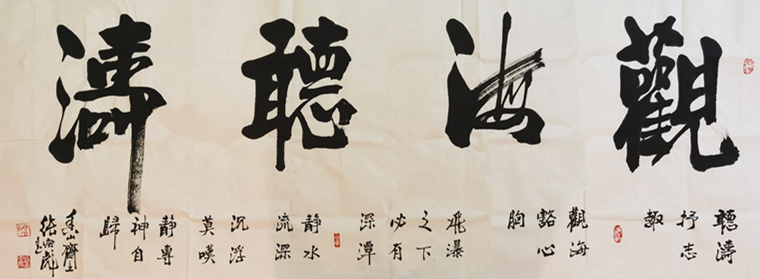 觀海聽濤
聽濤
抒志
觀海
豁心
胸
飛瀑
之下
必有
深潭
靜水
流深
沉浮
莫嘆
靜專
神自
歸